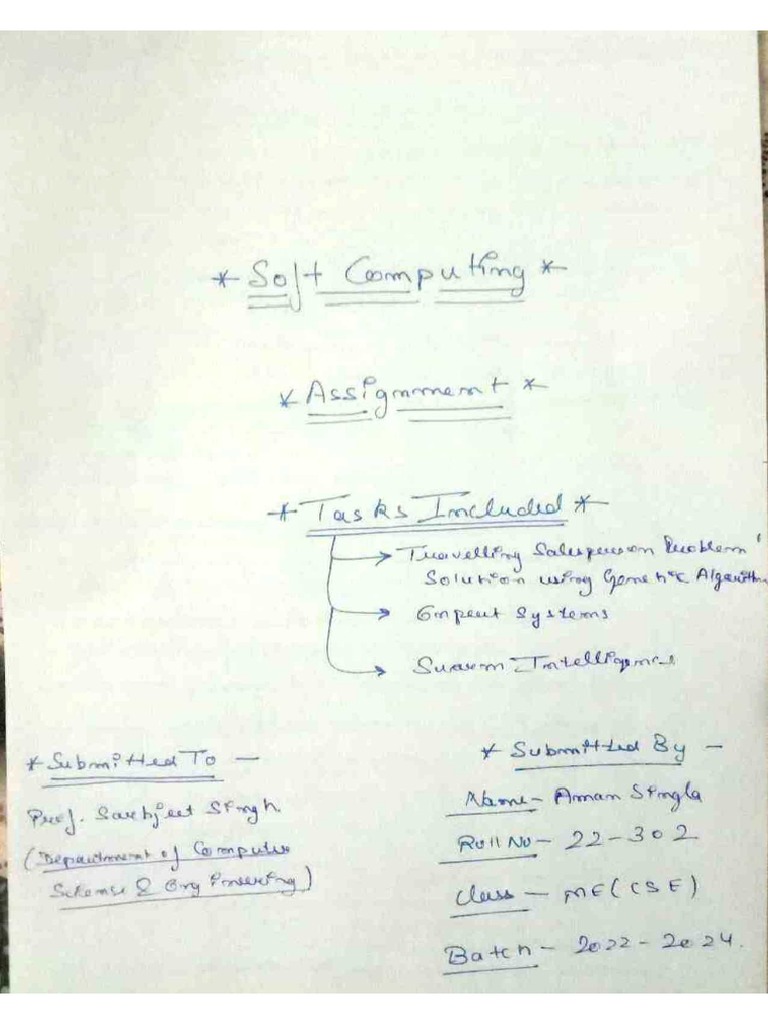 * Soft Computing *
* Assignment *
* Tasks Included *
Travelling Salesperson Problem
Solution using Genetic Algorithm
Expert Systems
Swarm Intelligence
* Submitted To -
Prof. Sarbjeet Singh.
(Department of Computer
Science & Engineering)
* Submitted By -
Name - Aman Singla
Roll No - 22-302
Class - ME (CSE)
Batch - 2022-2024.